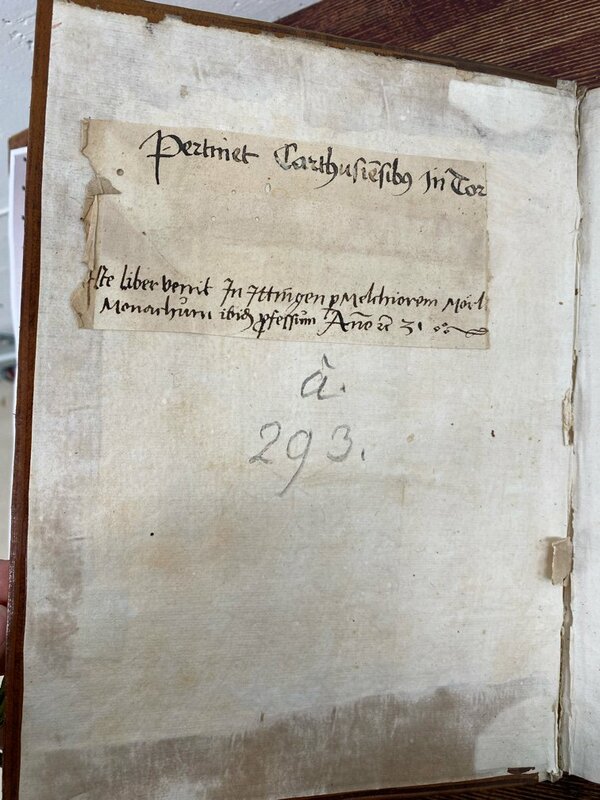 Pertinet Carthusiēsibꝯ In Tor
Iste liber venit In Ittingen ꝑ Melchiorem Mörl
Monachum ibidē ꝓfessum Año 31
à.
293.